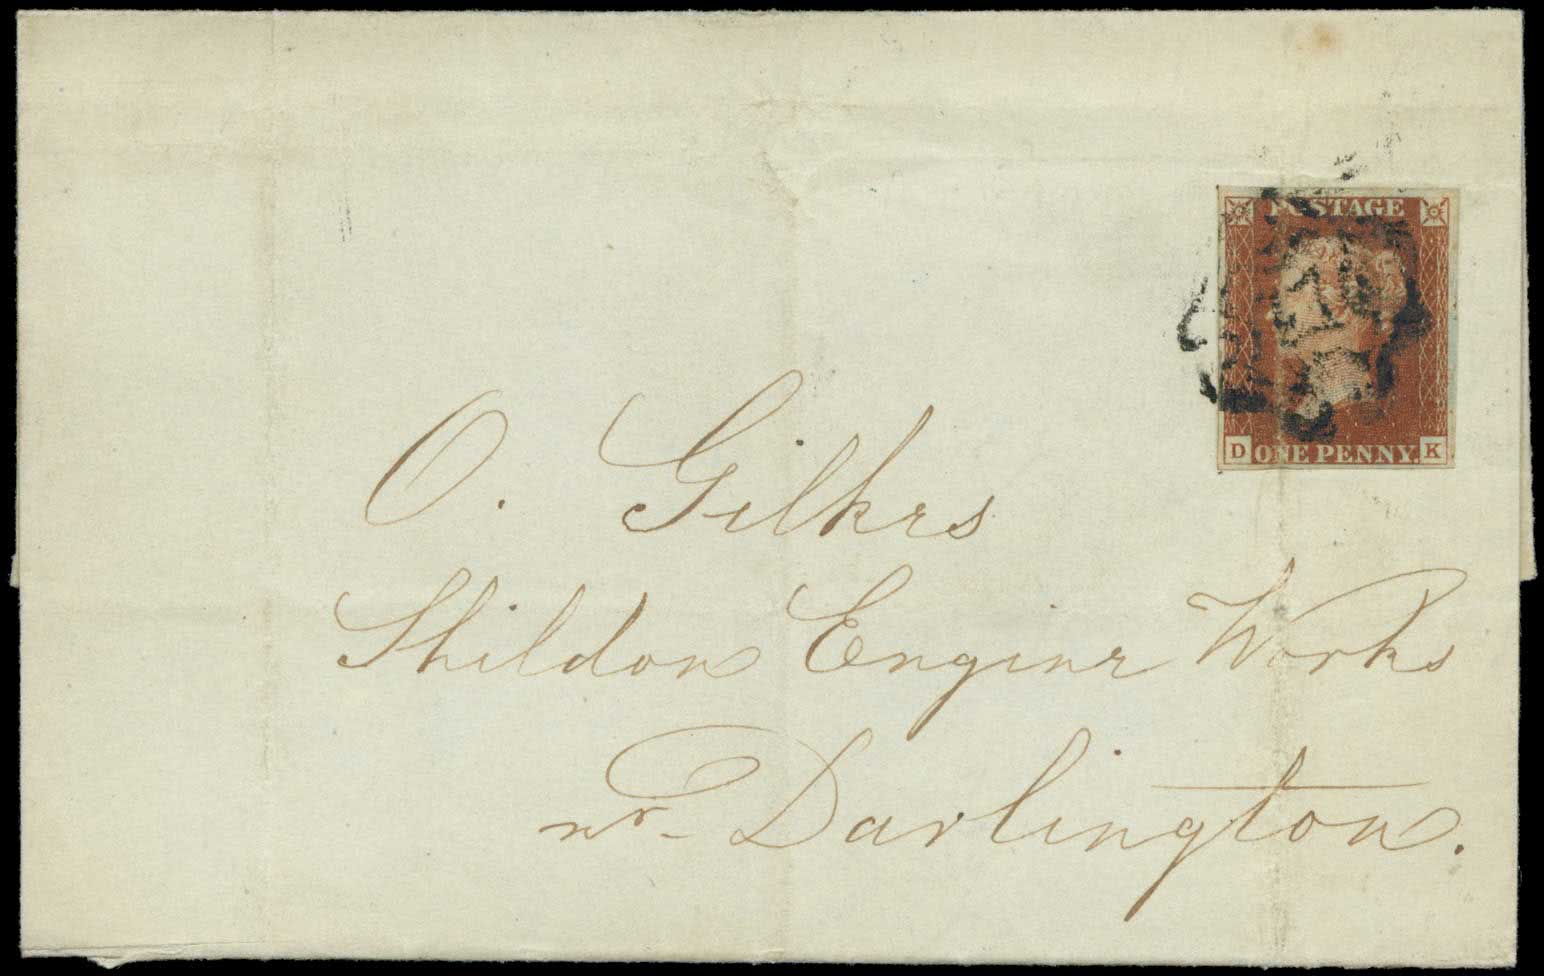 POSTAGE
D ONE PENNY. K
O. Gilkes
Shildon Engine Works
nr Darlington.